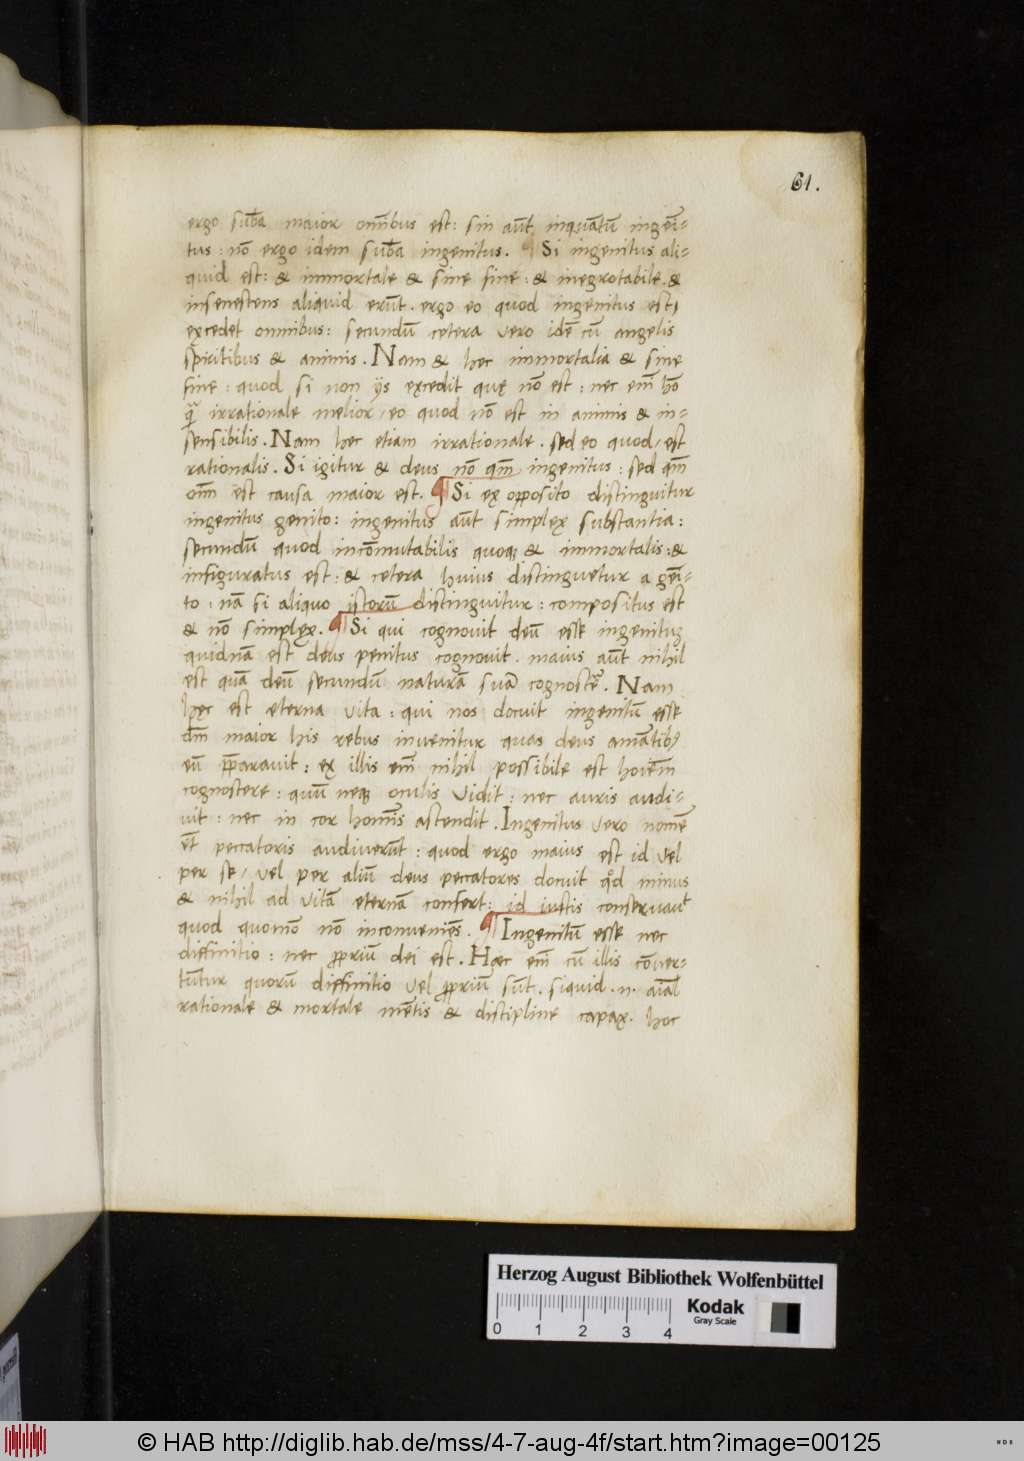 61.
ergo sub̄a maior om̄ibus est: sin aūt inquātū ingeī-
tus: nō ergo idem sub̄a ingenitus. ¶ Si ingenitus ali-
quid est: & immortale & sine fine: & inegrotabile. &
insenestens aliquid erūt. ergo eo quod ingenitus est,
excedet omnibus: secundū cetera vero idē cū angelis
spiritibus & animis. Nam & hec immortalia & sine
fine: quod si non ijs excedit quę nō est: nec em̄ hō
irrationale melior, eo quod nō est in animis & in-
sensibilis. Nam hec etiam irrationale. sed eo quod, est
rationalis. Si igitur & deus nō qm̄ ingenitus: sed qm̄
om̄ est causa maior est. ¶ Si ex opposito distinguitur
ingenitus genito: ingenitus aūt simplex substantia:
secundū quod incōmutabilis quoq & immortalis: &
infiguratus est: & cetera huius distinguetur a geī-
to: nā si aliquo istorū distinguitur: compositus est
& nō simplęx. ¶ Si qui cognovit deū esse ingenituȝ
quidnā est deus penitus cognovit. maius aūt nihil
est quā deū secundū naturā suā cognostē. Nam
hęc est eterna vita: qui nos docuit ingenitū esse
dm̄ maior his rebus invenitur quas deus amātib9
eū pparavit: ex illis em̄ nihil possibile est hoiēm
cognostere: quū neq oculis vidit: nec auris audi-
vit: nec in cor homis̄ astendit. Ingenitus vero nomē
et̄ peccatoris audiverūt: quod ergo maius est id vel
per se, vel per aliū deus peccatores docuit qd̄ minus
& nihil ad vitā eternā confert: id iustis conservaūt
quod quomō nō inconveniēs. ¶ Ingenitū esse nec
diffinitio: nec ppriū dei est. Hæc em̄ cū illis cōver-
tūtur quorū diffinitio vel ppriū sūt. siquid .n. aīal
rationale & mortale mētis & distipline capax. hoc
Herzog August Bibliothek Wolfenbüttel
0 1 2 3 4
Kodak
Gray Scale
© HAB http://diglib.hab.de/mss/4-7-aug-4f/start.htm?image=00125